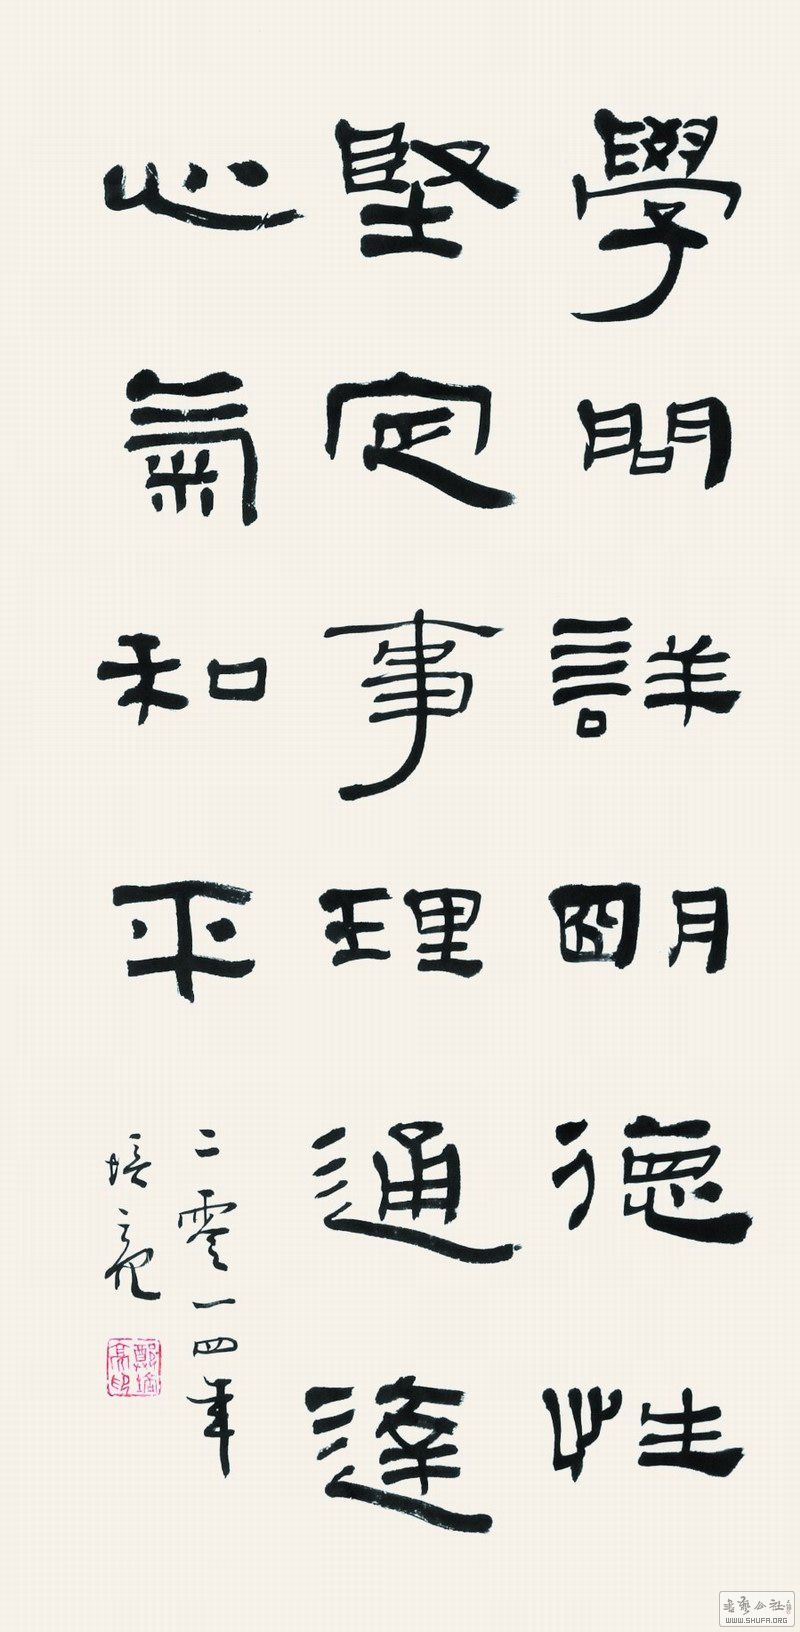 學問詳明德性
堅定事理通達
心氣和平
二零一四年
培亮
鄭培亮印
書藝公社
WWW.SHUFA.ORG